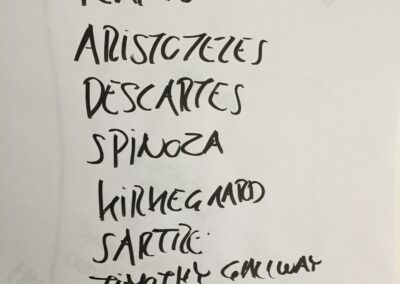 ARISTOTELES
DESCARTES
SPINOZA
KIRKEGAARD
SARTRE
TIMOTHY GALLWAY